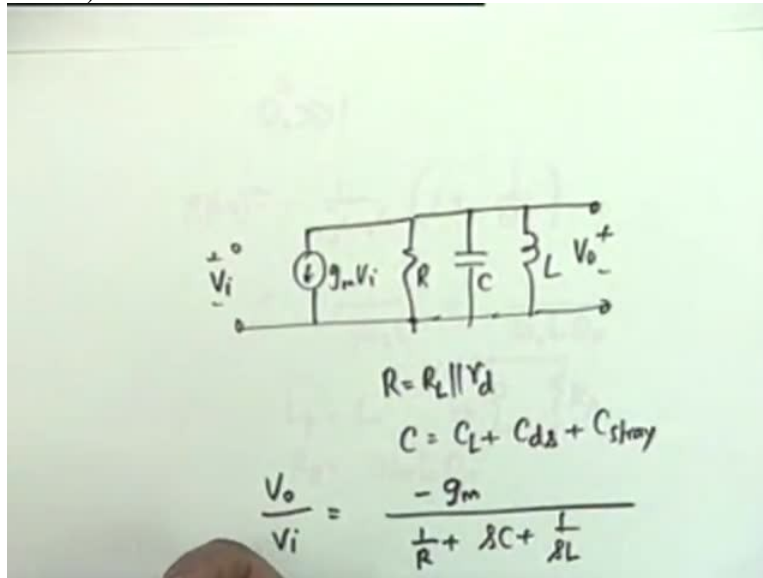 + Vi -
gmVi R C L Vo + -
R = RL || rd
C = CL + Cds + Cstray
Vo/Vi = -gm / (1/R + sC + 1/sL)